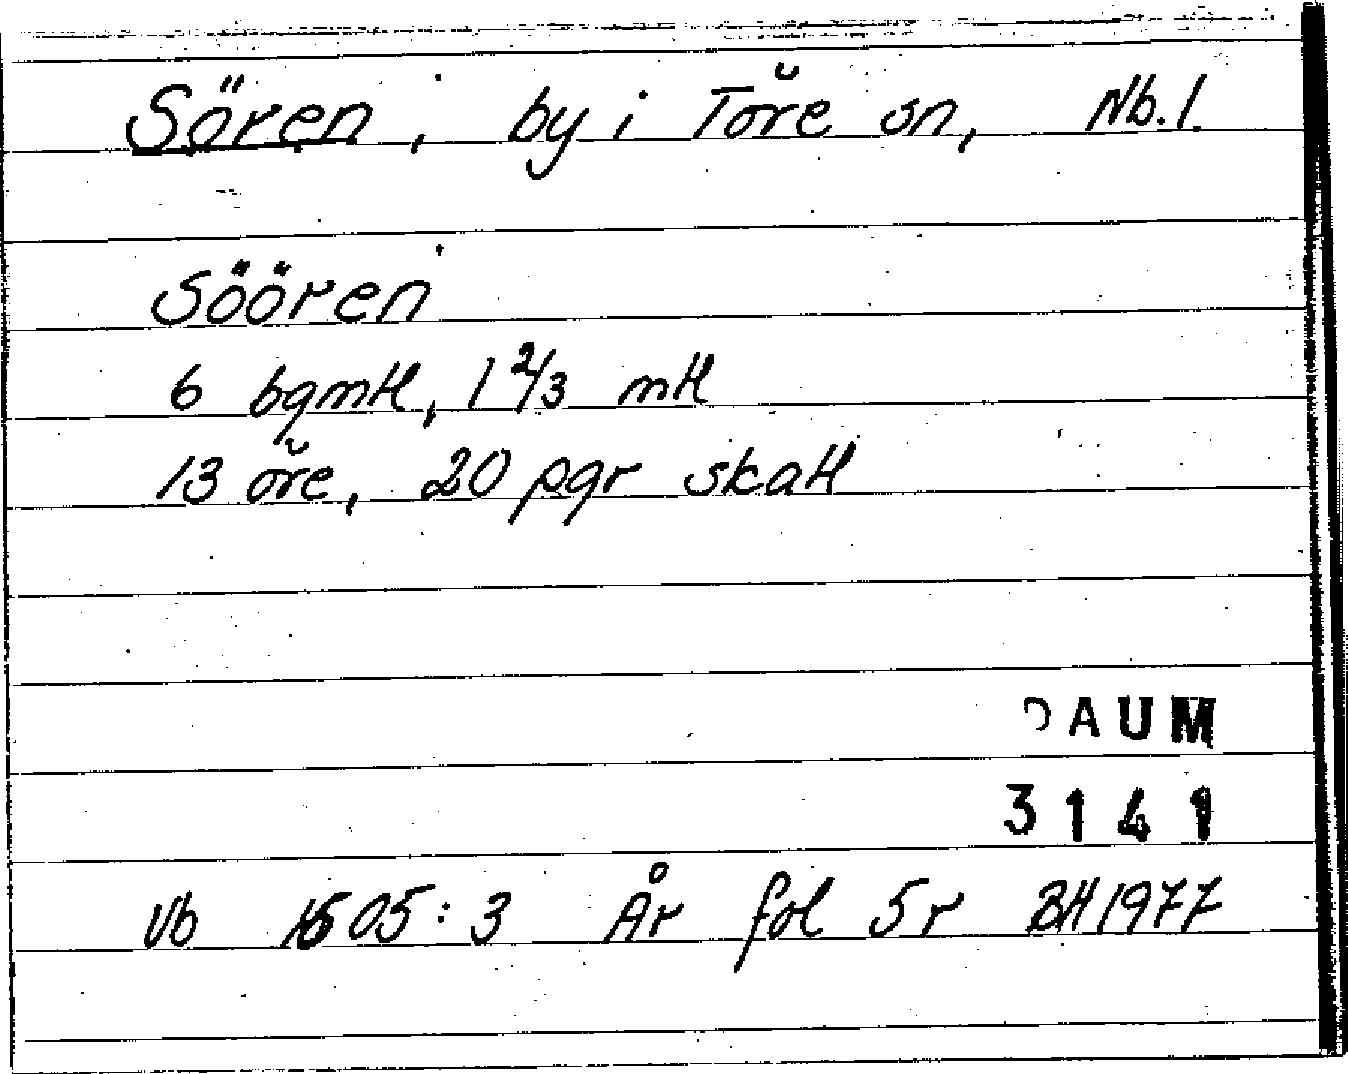 Sören, by i Töre sn, Nb.l.
Söören
6 bgmtl, 1 2/3 mtl
13 öre, 20 pgr skatt
DAUM
3141
Vb 1605:3 År fol 5r BH 1977